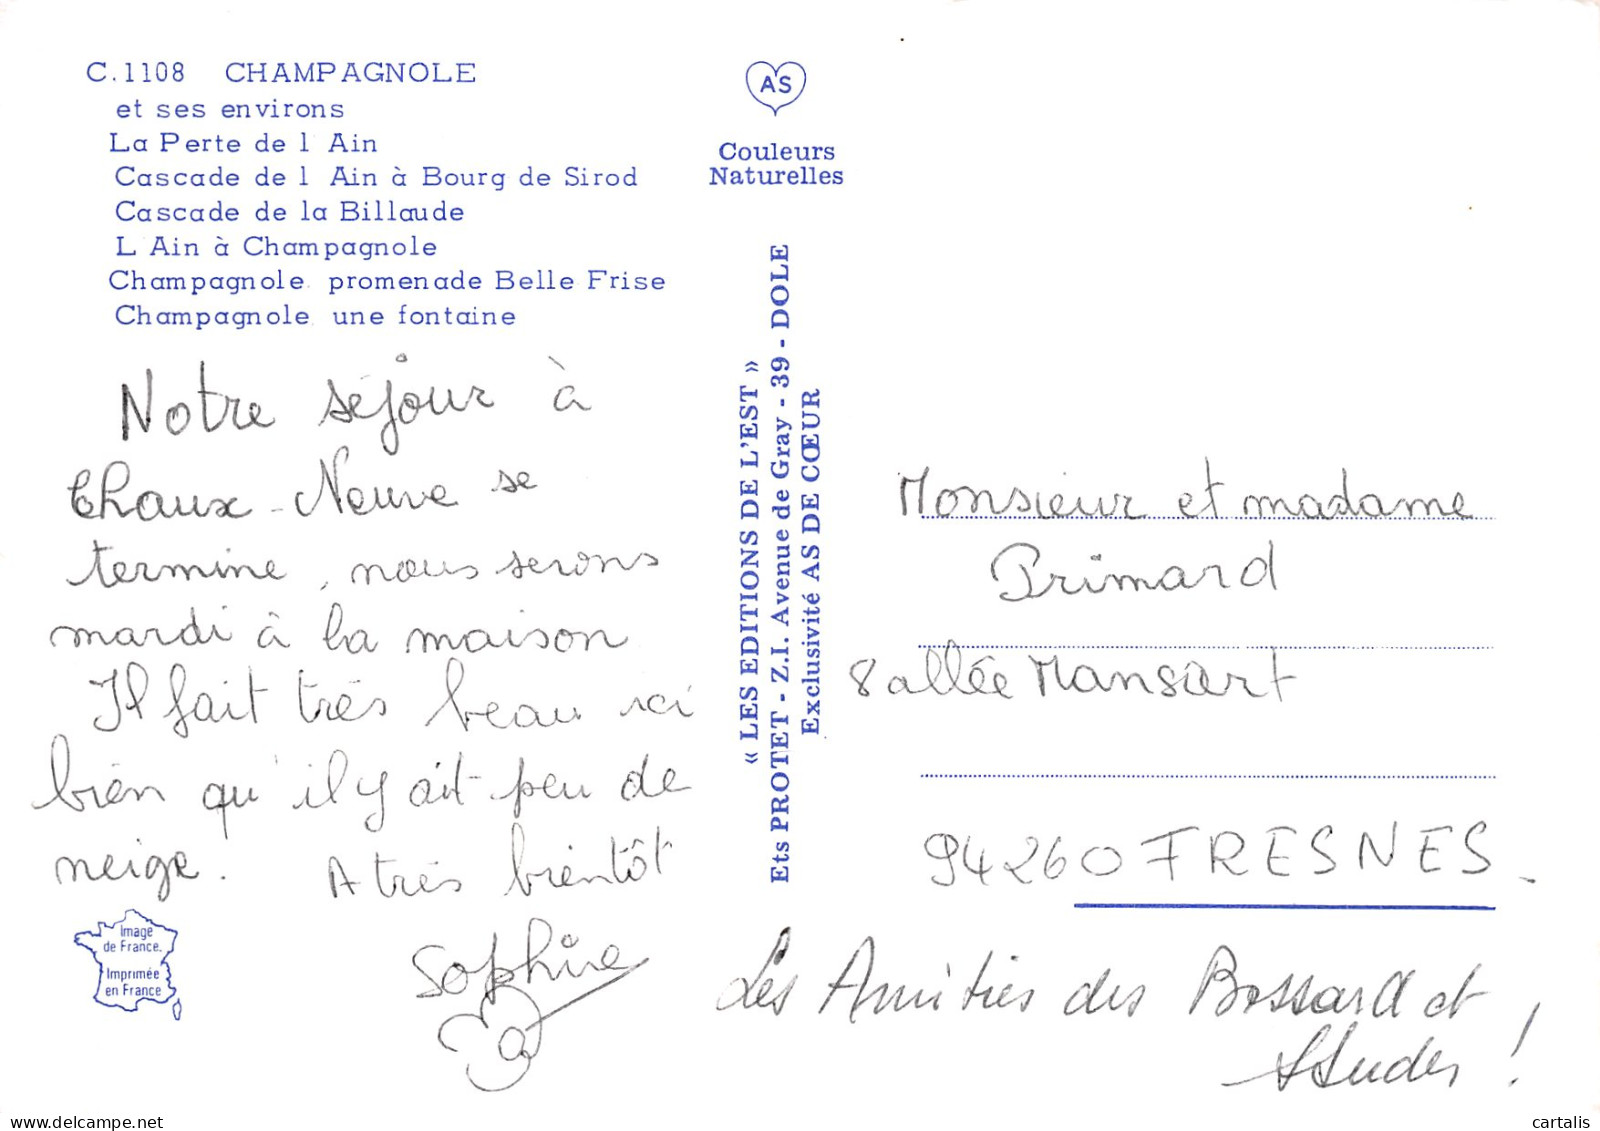 C.1108 CHAMPAGNOLE
et ses environs
La Perte de l'Ain
Cascade de l'Ain à Bourg de Sirod
Cascade de la Billaude
L'Ain à Champagnole
Champagnole. promenade Belle Frise
Champagnole. une fontaine
Notre séjour à
Chaux-Neuve se
termine, nous serons
mardi à la maison
Il fait très beau ici
bien qu'il y ait peu de
neige.
A très bientôt
Sophie
Image
de France.
Imprimée
en France
AS
Couleurs
Naturelles
« LES EDITIONS DE L'EST »
Ets PROTET - Z.I. Avenue de Gray - 39 - DOLE
Exclusivité AS DE CŒUR
Monsieur et madame
Primard
8 allée Mansart
94260 FRESNES.
Les Amitiés des Bossard et
!
cartalis